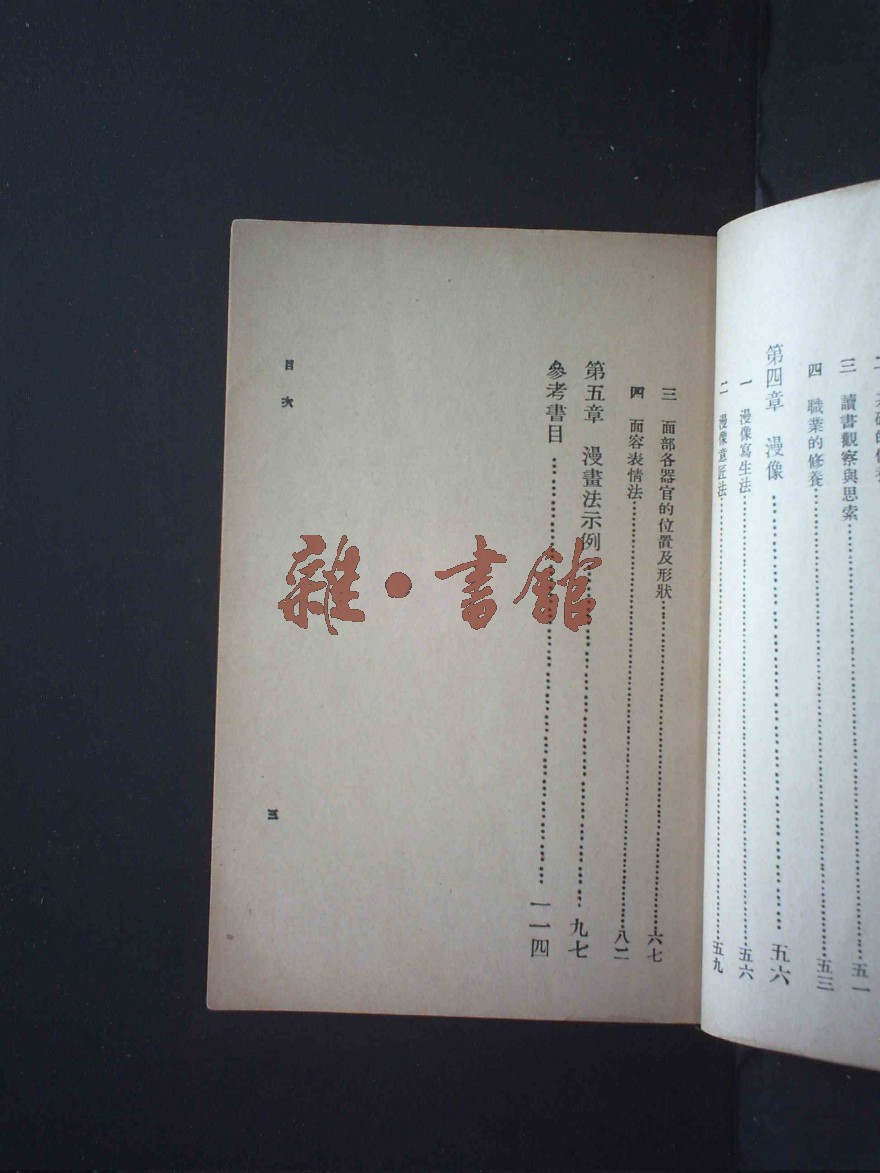 三　讀書觀察與思索……五一
四　職業的修養……五三
第四章　漫像……五六
一　漫像寫生法……五六
二　漫像意匠法……五九
三　面部各器官的位置及形狀……六七
四　面容表情法……八二
第五章　漫畫法示例……九七
參考書目……一一四
目次
三
雜·書館